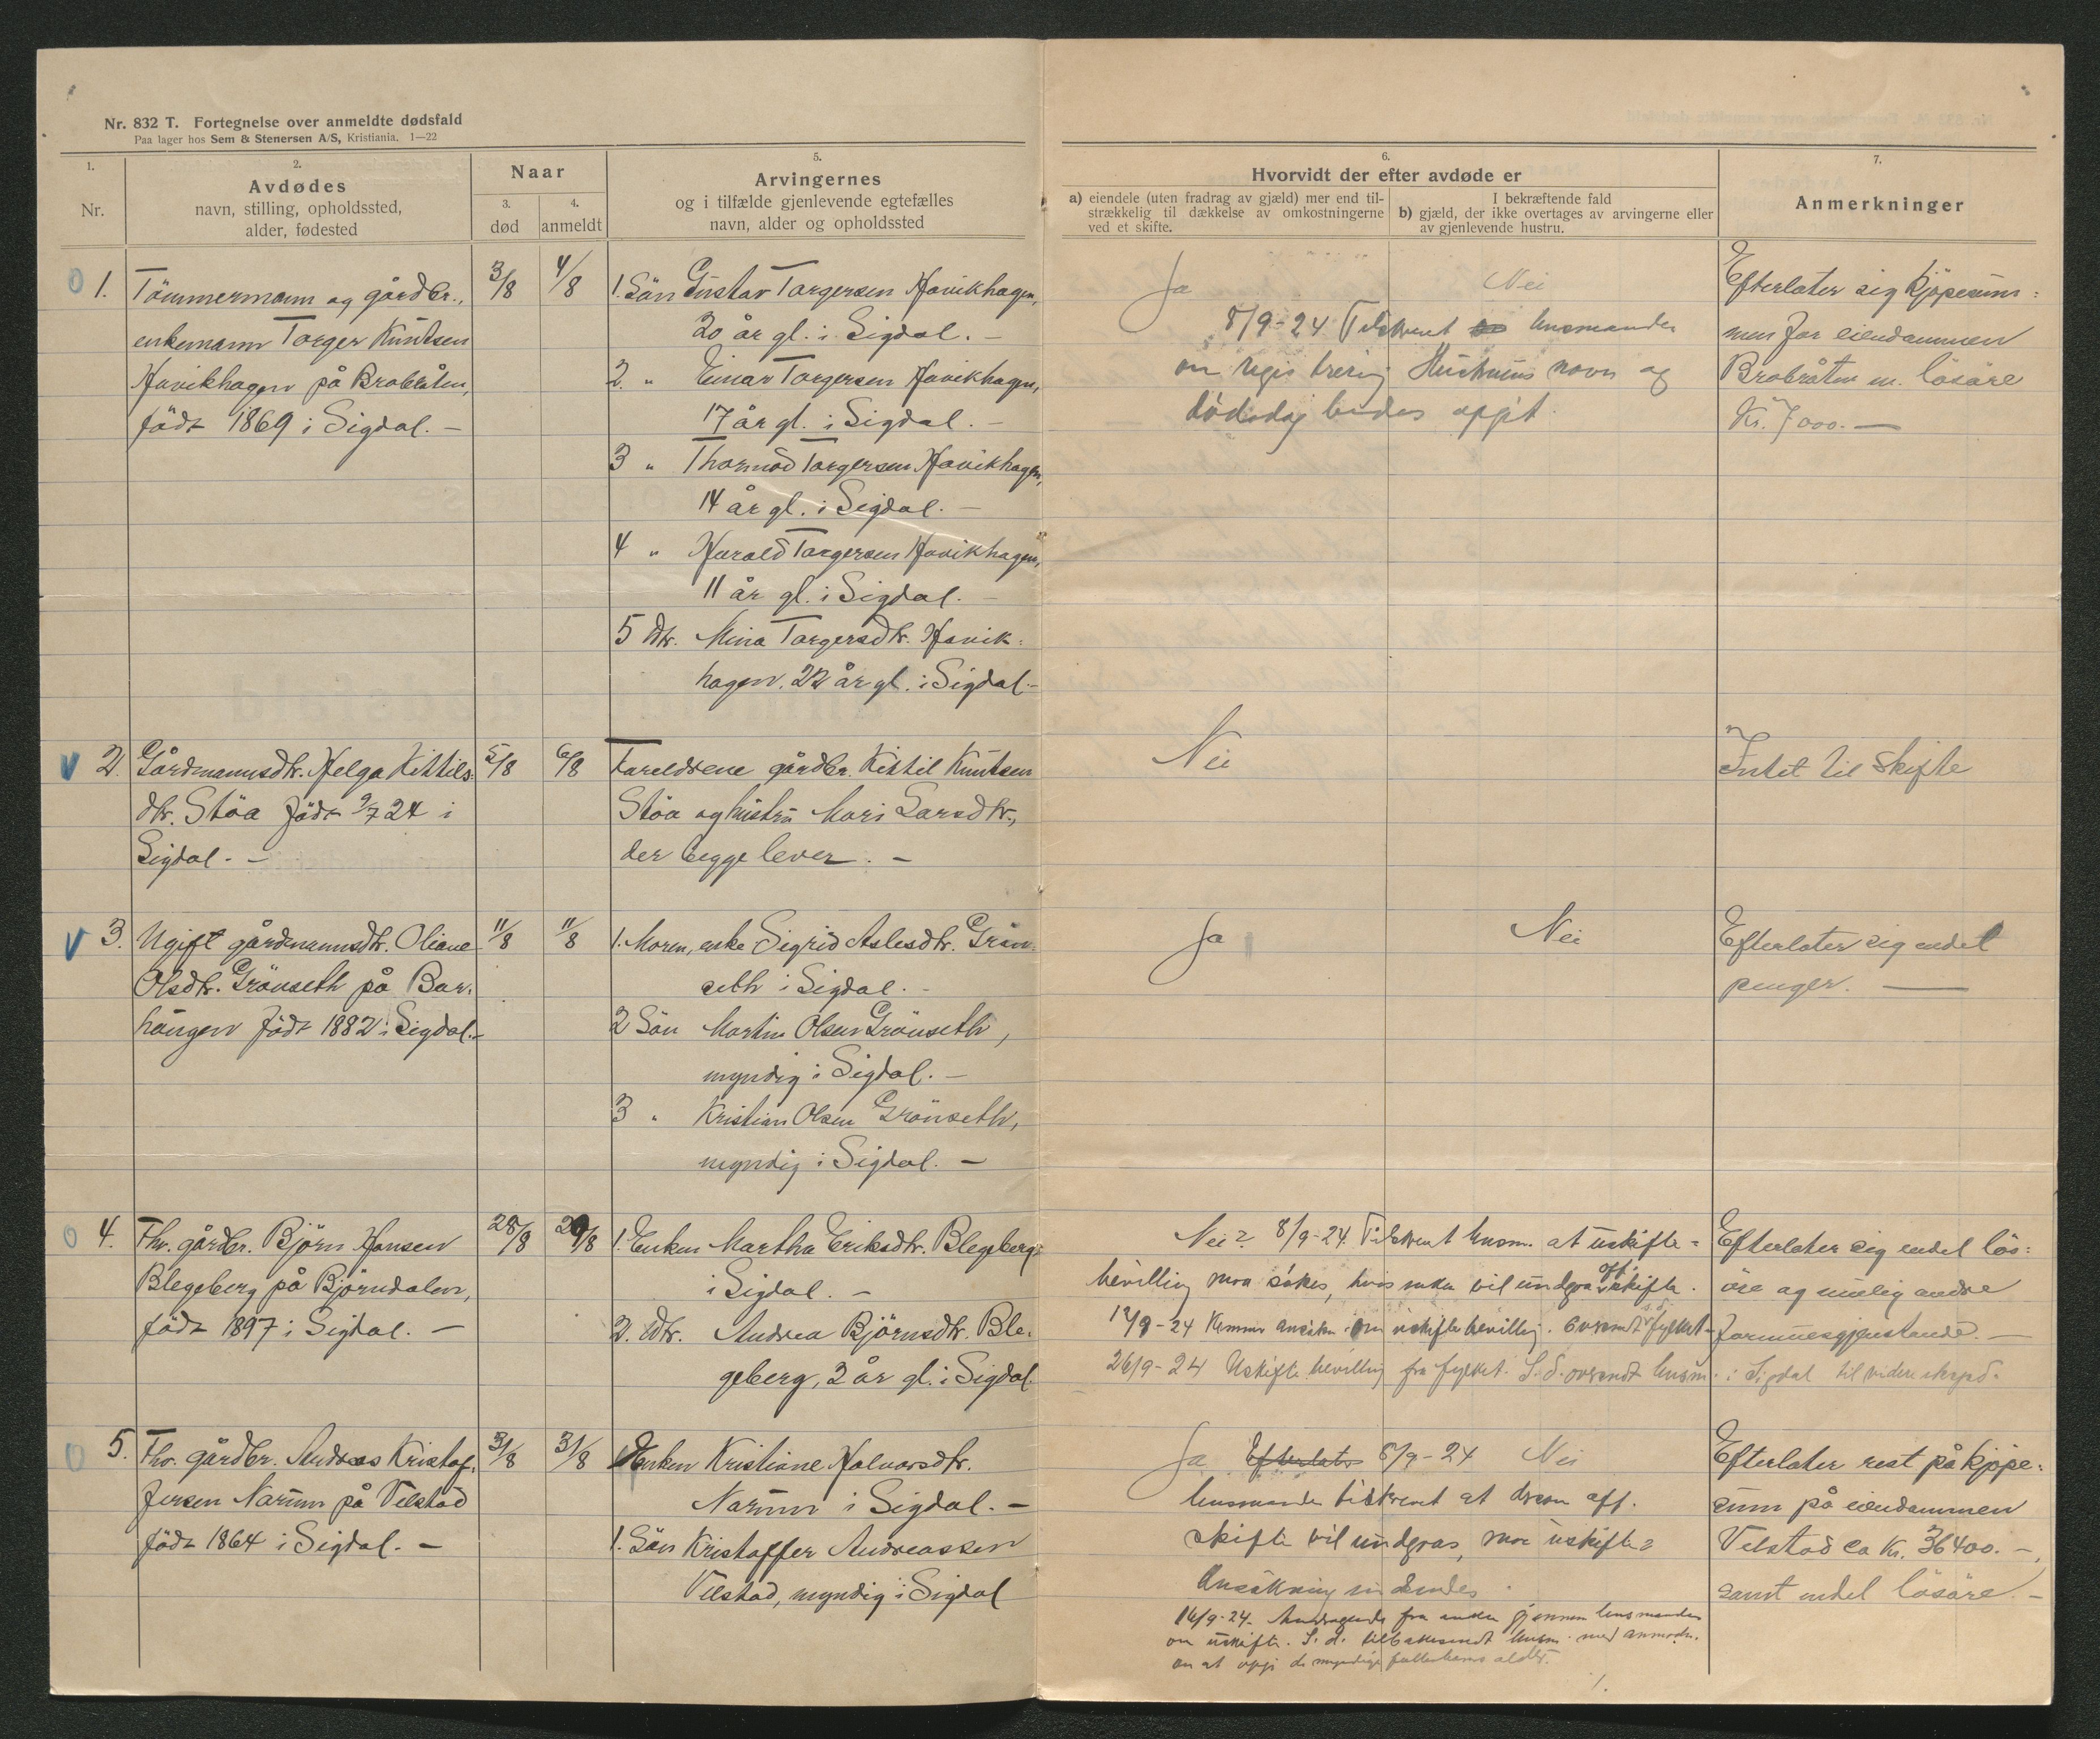 Nr. 832 T. Fortegnelse over anmeldte dødsfald
Paa lager hos Sem & Stenersen A/S, Kristiania. 1—22
1.
Nr.
2.
Avdødes
navn, stilling, opholdssted,
alder, fødested
Naar
3.
død
4.
anmeldt
5.
Arvingernes
og i tilfælde gjenlevende egtefælles
navn, alder og opholdssted
6.
Hvorvidt der efter avdøde er
a) eiendele (uten fradrag av gjæld) mer end til-
strækkelig til dækkelse av omkostningerne
ved et skifte.
I bekræftende fald
b) gjæld, der ikke overtages av arvingerne eller
av gjenlevende hustru.
7.
Anmerkninger
0 1.
Tömmermann og gårdbr.,
enkemann Torger Knutsen
Havikhagen på Brobråten,
födt 1869 i Sigdal. –
3/8
4/8
1. Sön Gustav Torgersen Havikhagen,
20 år gl. i Sigdal. –
2. " Einar Torgersen Havikhagen,
17 år gl. i Sigdal. –
3 " Thormod Torgersen Havikhagen,
14 år gl. i Sigdal. –
4 " Harald Torgersen Havikhagen,
11 år gl. i Sigdal. –
5 Dtr. Mina Torgersdtr. Havik-
hagen. 22 år gl. i Sigdal. –
Ja
Nei
8/9-24 Tilskrevet lensmanden
om registrering Hustruens navn og
dödsdag bedes opgit.
Efterlater sig kjöpesum-
men for eiendommen
Brobråten m. lösöre
Kr. 7000. —
V 2.
Gårdmannsdtr. Helga Kittils-
dtr. Stöa födt 9/7 24 i
Sigdal. –
5/8
6/8
Foreldrene gårdbr. Kittil Knutsen
Stöa og hustru Mari Larsdtr.,
der begge lever. –
Nei
Intet til skifte
V 3.
Ugift gårdmannsdtr. Oliane
Olsdtr. Grönseth på Bar-
haugen födt 1882 i Sigdal. –
11/8
11/8
1. Moren, enke Sigrid Aslesdtr. Grön-
seth i Sigdal. –
2 Sön Martin Olsen Grönseth,
myndig i Sigdal. –
3 " Kristian Olsen Grönseth,
myndig i Sigdal. –
Ja
Nei
Efterlater sig endel
penger. —
0 4.
Fhv. gårdbr. Björn Hansen
Blegeberg på Björndalen,
födt 1897 i Sigdal. –
28/8
29/8
1. Enken Martha Eriksdtr. Blegeberg
i Sigdal. –
2. Dtr. Andrea Björnsdtr. Ble-
geberg, 2 år gl. i Sigdal
Nei? 8/9-24. Tilskrevet lensm. at uskifte-
bevilling maa sökes, hvis enken vil undgaa off. skifte.
12/9-24 Kommer ansökn. om uskiftebevilling. Oversendt s.d. fylket
26/9-24 Uskiftebevilling fra fylket. S.d. oversendt lensm. i Sigdal til videre
Efterlater sig endel lös-
öre og mulig andre
formuesgjenstande. –
0 5.
Fhv. gårdbr. Andreas Kristof-
fersen Narum på Velstad
födt 1864 i Sigdal. –
31/8
31/8
Enken Kristiane Halvorsdtr.
Narum i Sigdal. –
1. Sön Kristoffer Andreassen
Velstad, myndig i Sigdal
Ja Efterlater 8/9-24 Nei
lensmanden tilskrevet at dersom off.
skifte vil undgaas, maa uskifte-
ansökning indsendes.
16/9-24. Andragende fra enken gjennem lensmanden
om uskifte. S.d. tilbakesendt lensm. med anmodn.
om at opgi de myndige fællesbarns alder.
Efterlater rest på kjöpe-
sum på eiendommen
Velstad ca Kr. 36400. –,
samt endel lösöre. –